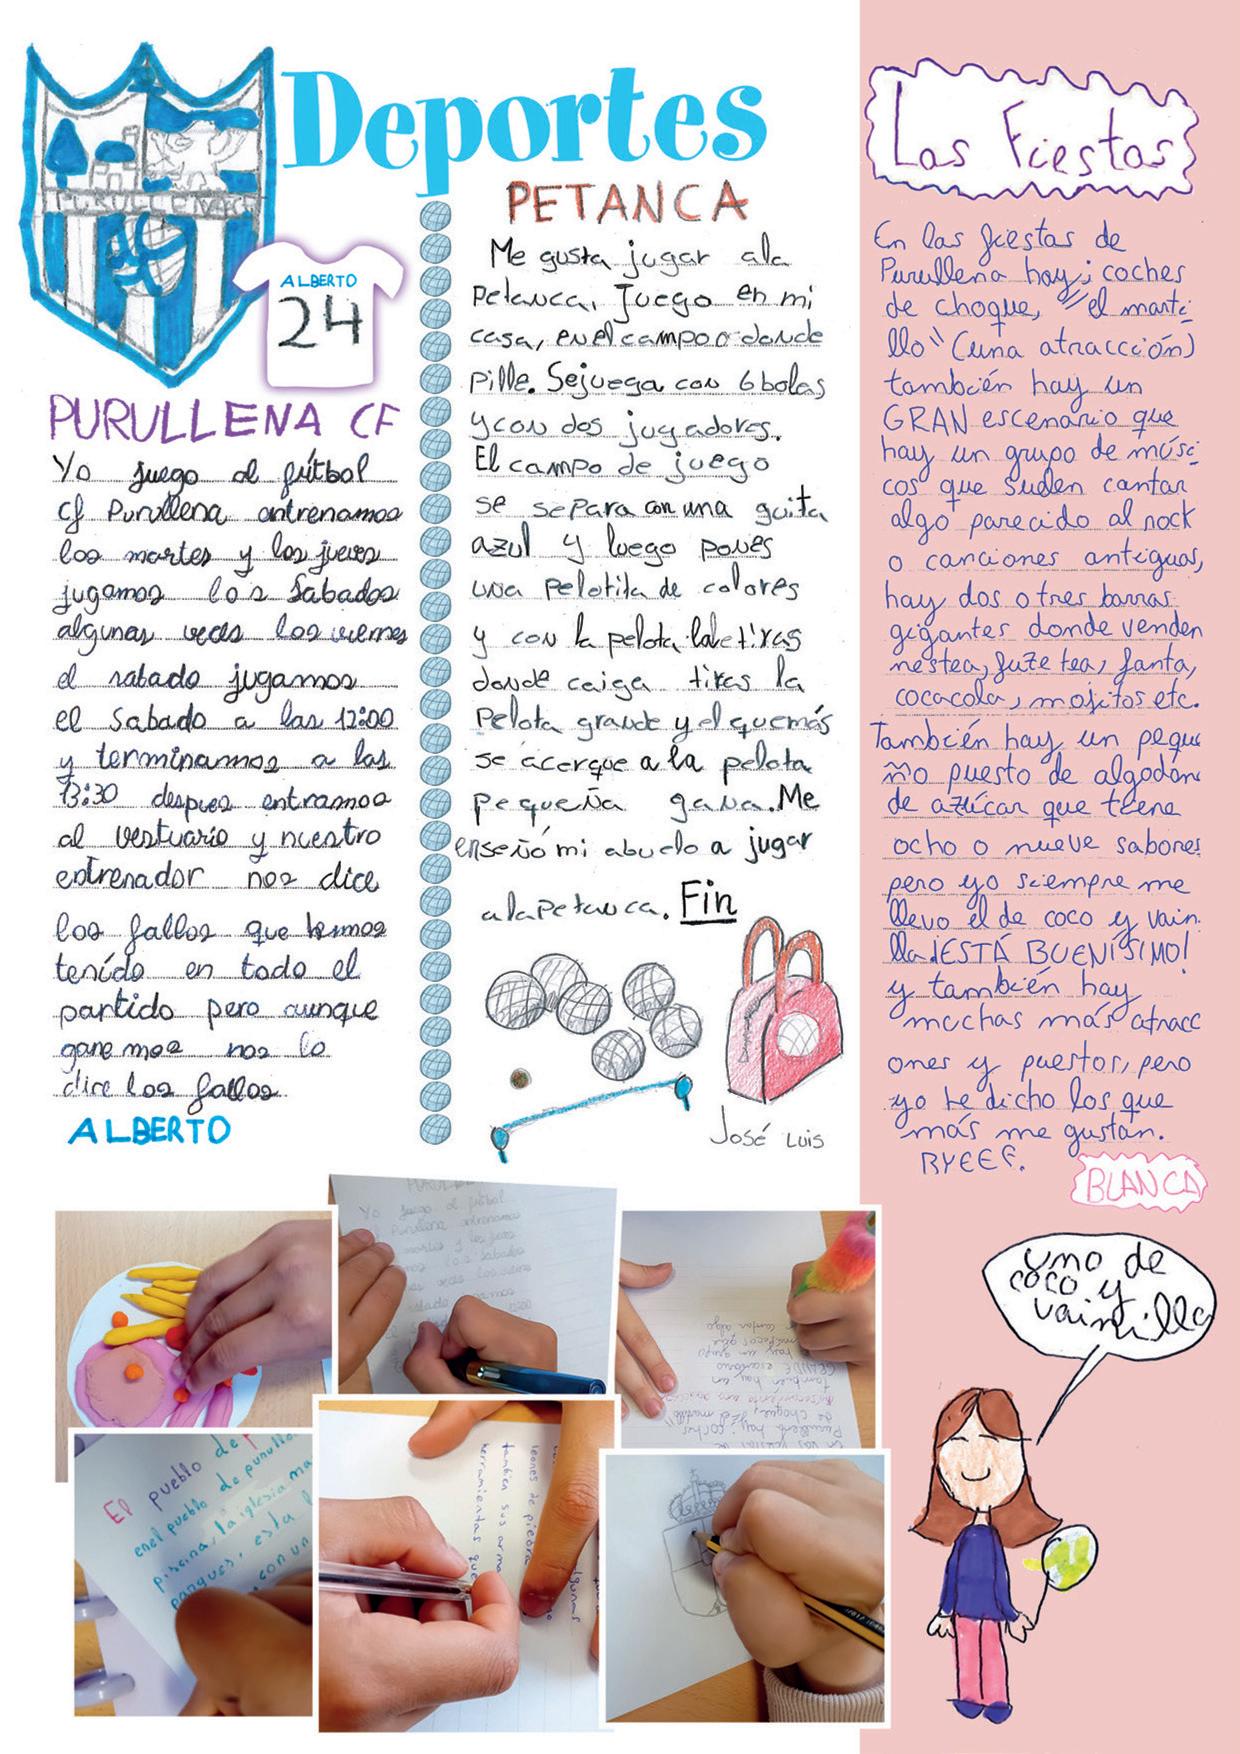 Deportes
PURULLENA CF
ALBERTO
24
PURULLENA CF
Yo juego al fútbol
cf Purullena entrenamos
los martes y los jueves
jugamos los Sabados
algunas veces los viernes
el sabado jugamos
el Sabado a las 12:00
y terminamos a las
13:30 despues entramos
al vestuario y nuestro
entrenador nos dice
los fallos que hemos
tenido en todo el
partido pero aunque
ganemos nos lo
dice los fallos
ALBERTO
PETANCA
Me gusta jugar ala
Petanca, Juego en mi
casa, en el campo o donde
pille. Sejuega con 6 bolas
y con dos jugadores.
El campo de juego
se separa con una guita
azul y luego pones
una pelotita de colores
y con la pelota la tiras
donde caiga tiras la
Pelota grande y el quemás
se acerque a la pelota
pequeña gana. Me
enseño mi abuelo a jugar
a la Petanca. Fin
José Luis
Las Fiestas
En las fiestas de
Purullena hay; coches
de choque, "el marti-
llo" (una atracción)
también hay un
GRAN escenario que
hay un grupo de músi-
cos que suelen cantar
algo parecido al rock
o canciones antiguas,
hay dos o tres barras
gigantes donde venden
nestea, fuze tea, fanta,
cocacola, mojitos etc.
También hay un peque
ño puesto de algodón
de azúcar que tiene
ocho o nueve sabores
pero yo siempre me
llevo el de coco y vain.
lla ¡ESTÁ BUENÍSIMO!
y también hay
muchas más atracc
ones y puestos, pero
yo he dicho los que
más me gustan.
BYEEE.
BLANCA
uno de
coco y
vainilla
Yo juego al fútbol
El pueblo de
en el pueblo de purulle
piscina, la iglesia ma
parques, esta
con un
leones de piedra
tambien sus arma
herramientas que